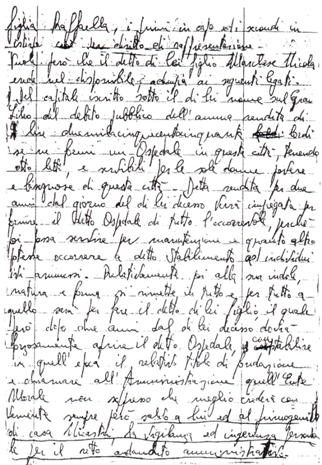 figlia Raffaella, i primi in capo ed i secondi in
istirpe con diritto di rappresentazione
Vuole però che il detto di lei figlio Marchese Nicola
erede nel disponibile, adempia ai seguenti legati.
Del capitale iscritto sotto il di lei nome sul Gran
Libro del debito pubblico dell'annua rendita di
Lire duemilacinquecentocinquanta lorde
se ne formi un Ospedale in questa città, tenendo
otto letti, e servibili per le sole donne povere
e bisognose di questa città. Detta rendita per due
anni dal giorno del di lei decesso verrà impiegata per
fornire il detto Ospedale di tutto l'occorrevole, perchè
poi possa servire per manutenzione e quanto altro
potesse occorrere a detto Stabilimento ed individui
ivi ammessi. Relativamente poi alla sua indole,
natura e forma si rimette in tutto e per tutto a
quello sarà per fare il detto di lei figlio il quale
però dopo due anni dal di lei decesso dovrà
aprire il detto Ospedale, e stabilire
in quell'epoca il relativo titolo di fondazione
e chiamare all'Amministrazione quell'Ente
Morale non soppresso che meglio crederà con-
veniente sempre però salvo a lui ed al primogenito
di casa la vigilanza ed ingerenza persona-
le per il retto andamento amministrativo